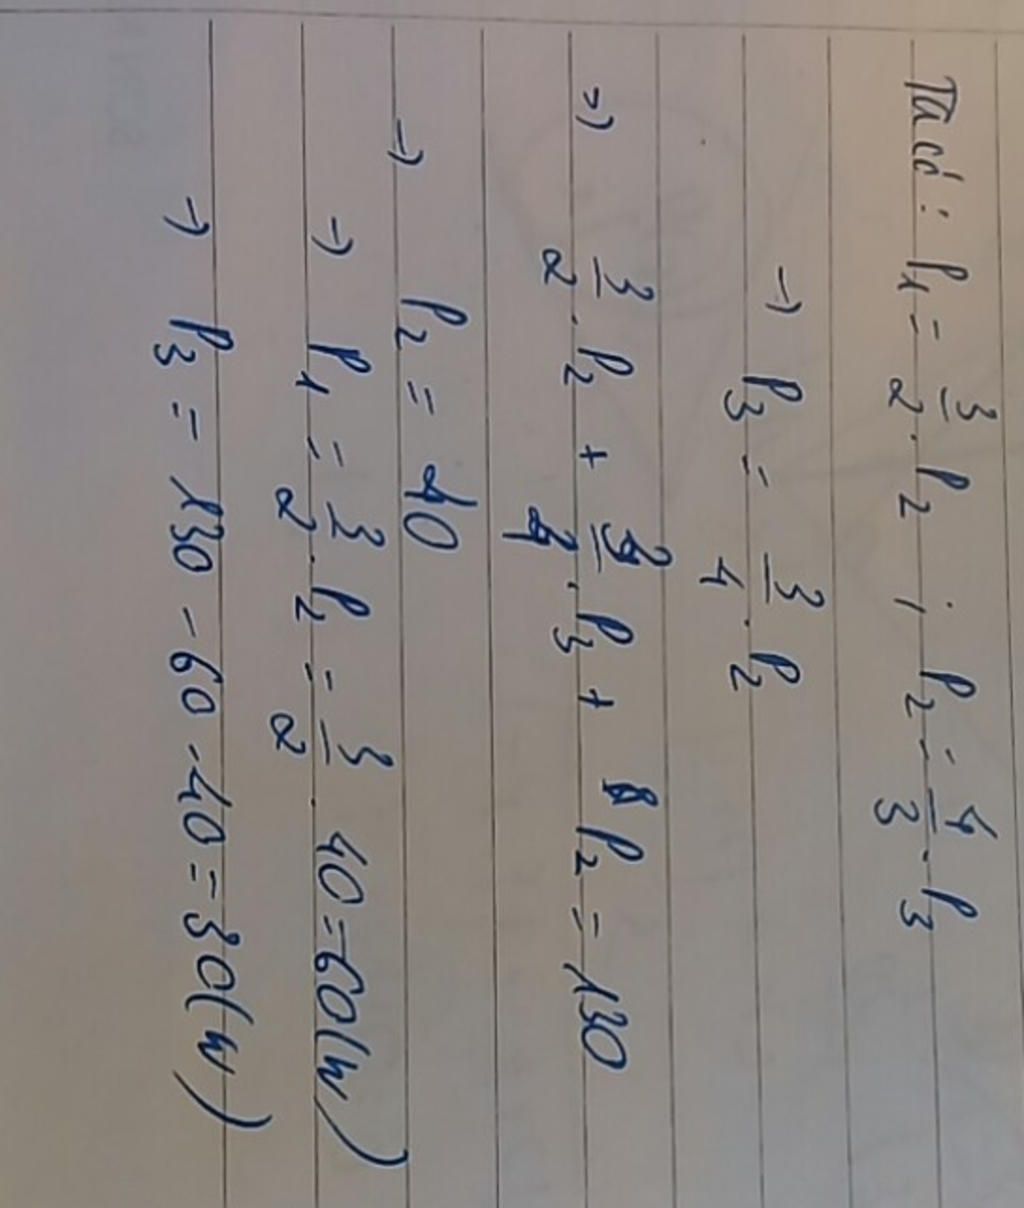 Ta có: P₁ = 3/2 . P₂ ; P₂ = 4/3 . P₃
→ P₃ = 3/4 . P₂
=> 3/2 . P₂ + 3/4 . P₃ + P₂ = 130
→ P₂ = 40
→ P₁ = 3/2 . P₂ = 3/2 . 40 = 60 (W)
→ P₃ = 130 - 60 - 40 = 30 (W)